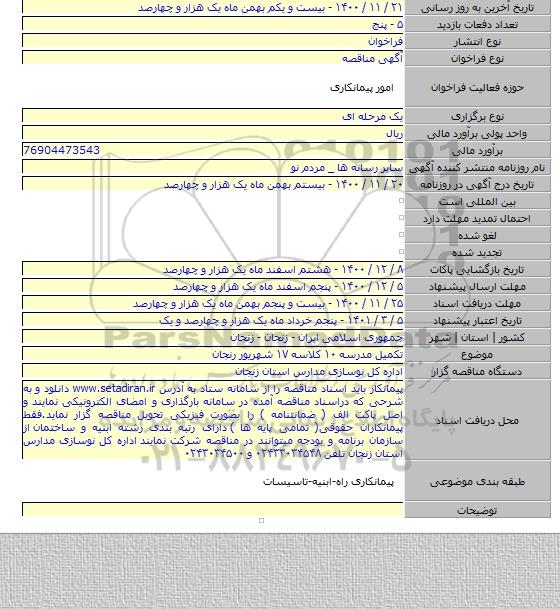 تاریخ آخرین به روز رسانی ۲۱ / ۱۱ / ۱۴۰۰ - بیست و یکم بهمن ماه یک هزار و چهارصد
تعداد دفعات بازدید ۵ - پنج
نوع انتشار فراخوان
نوع فراخوان آگهی مناقصه
حوزه فعالیت فراخوان امور پیمانکاری
نوع برگزاری یک مرحله ای
واحد پولی برآورد مالی ریال
برآورد مالی 76904473543
نام روزنامه منتشر کننده آگهی سایر رسانه ها _ مردم نو
تاریخ درج آگهی در روزنامه ۲۰ / ۱۱ / ۱۴۰۰ - بیستم بهمن ماه یک هزار و چهارصد
بین المللی است
احتمال تمدید مهلت دارد
لغو شده
تجدید شده
تاریخ بازگشایی پاکات ۸ / ۱۲ / ۱۴۰۰ - هشتم اسفند ماه یک هزار و چهارصد
مهلت ارسال پیشنهاد ۵ / ۱۲ / ۱۴۰۰ - پنجم اسفند ماه یک هزار و چهارصد
مهلت دریافت اسناد ۲۵ / ۱۱ / ۱۴۰۰ - بیست و پنجم بهمن ماه یک هزار و چهارصد
تاریخ اعتبار پیشنهاد ۵ / ۳ / ۱۴۰۱ - پنجم خرداد ماه یک هزار و چهارصد و یک
کشور | استان | شهر جمهوری اسلامی ایران - زنجان - زنجان
موضوع تکمیل مدرسه ۱۰ کلاسه ۱۷ شهریور زنجان
دستگاه مناقصه گزار اداره کل نوسازی مدارس استان زنجان
محل دریافت اسناد پیمانکار باید اسناد مناقصه را از سامانه ستاد به آدرس www.setadiran.ir دانلود و به
شرحی که دراسناد مناقصه آمده در سامانه بارگذاری و امضای الکترونیکی نمایند و
اصل پاکت الف ( ضمانتنامه ) را بصورت فیزیکی تحویل مناقصه گزار نماید.فقط
پیمانکاران حقوقی( تمامی پایه ها ) دارای رتبه بندی رشته ابنیه و ساختمان از
سازمان برنامه و بودجه میتوانند در مناقصه شرکت نمایند اداره کل نوسازی مدارس
استان زنجان تلفن ۰۲۴۳۳۰۳۴۵۴۸ و ۰۲۴۳۰۳۴۵۰۰
طبقه بندی موضوعی پیمانکاری راه-ابنیه-تاسیسات
توضیحات
ParsNamadData
۰۲۱-۸۸۳۴۹۶۷۰-۵